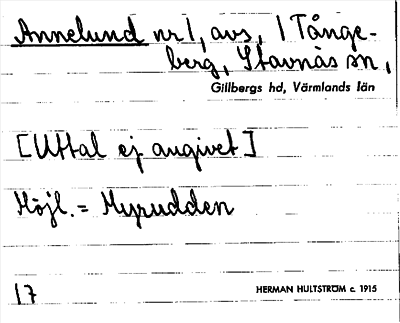 Annelund nr 1, avs, 1 Tånge-
berg, Stavnäs sn,
Gillbergs hd, Värmlands län
[Uttal ej angivet]
Möjl. = Myrudden
17
HERMAN HULTSTRÖM c. 1915